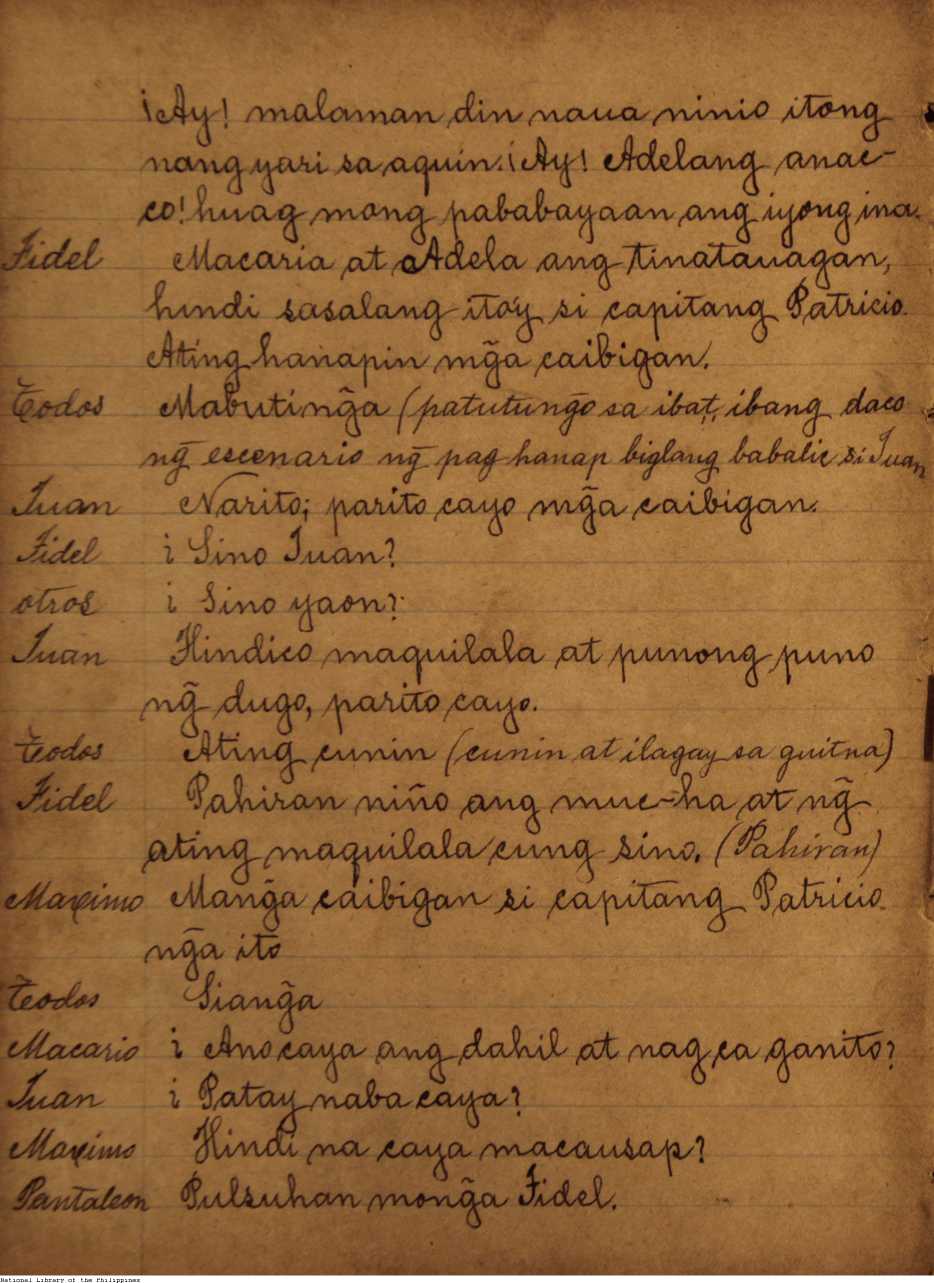 ¡Ay! malaman din naua ninio itong
nang yari sa aquin. ¡Ay! Adelang anac-
co! huag mong pababayaan ang iyong ina.
Fidel Macaria at Adela ang tinatauagan,
hindi sasalang itoy si capitang Patricio.
Ating hanapin mg̃a caibigan.
Todos Mabuting̃a (patutung̃o sa ibat, ibang daco
ng̃ escenario ng̃ pag hanap biglang babalic si Juan
Juan Narito; parito cayo mg̃a caibigan.
Fidel ¿ Sino Juan?
otros ¿ Sino yaon?
Juan Hindico maquilala at punong puno
ng̃ dugo, parito cayo.
Todos Ating cunin (cunin at ilagay sa guitna)
Fidel Pahiran niño ang muc-ha at ng̃
ating maquilala cung sino. (Pahiran)
Maximo Mang̃a caibigan si capitang Patricio
ng̃a ito
Todos Siang̃a
Macario ¿ Ano caya ang dahil at nag ca ganito?
Juan ¿ Patay naba caya?
Maximo Hindi na caya macausap?
Pantaleon Pulsuhan mong̃a Fidel.
National Library of the Philippines